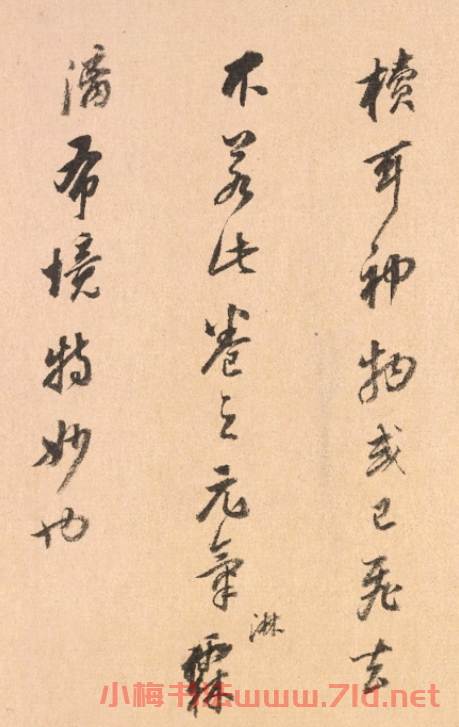 櫝耳神物或已飛去
不若此卷之元氣淋
漓布境特妙也
小梅书法www.7ld.net